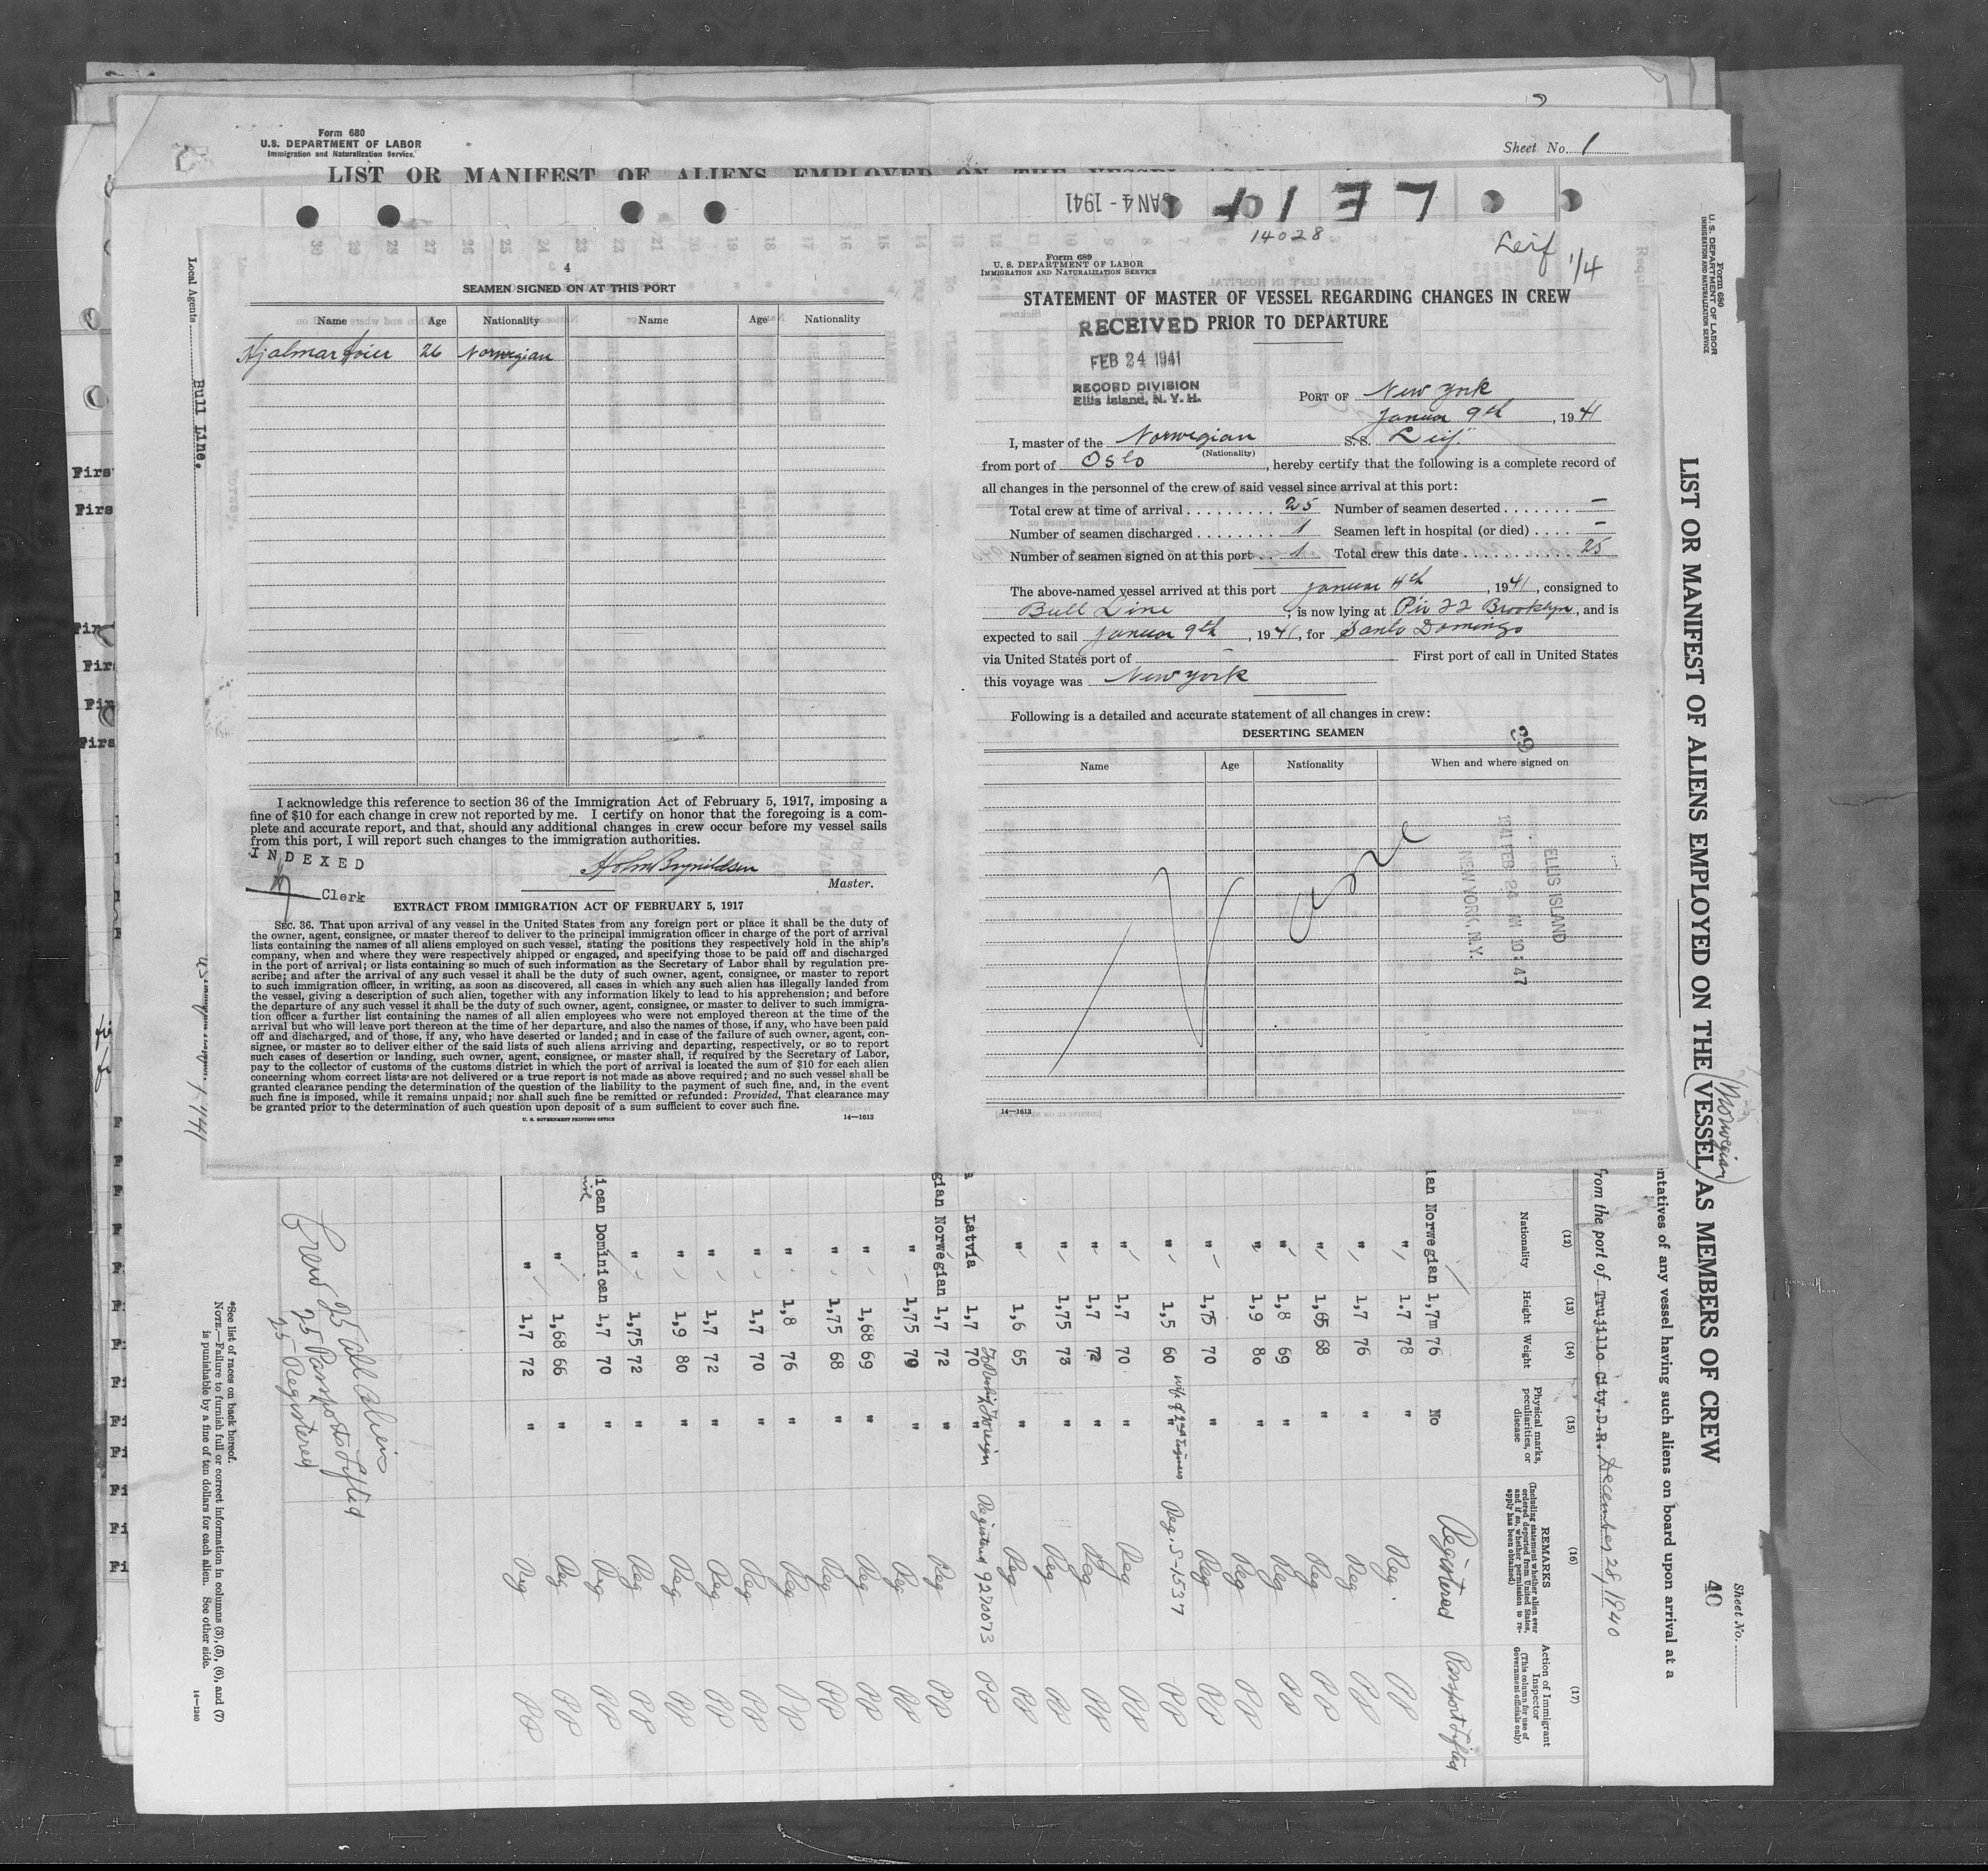 Form 680
U.S. DEPARTMENT OF LABOR
Immigration and Naturalization Service.
Sheet No. 1
LIST OR MANIFEST OF ALIENS EMPLOYED ON THE VESSEL
JAN 4 - 1941
LEIF
14028
Leif 1/4
Local Agents Bull Line.
4
SEAMEN SIGNED ON AT THIS PORT
Name Age Nationality Name Age Nationality
Hjalmar 26 Norwegian
I acknowledge this reference to section 36 of the Immigration Act of February 5, 1917, imposing a
fine of $10 for each change in crew not reported by me. I certify on honor that the foregoing is a com-
plete and accurate report, and that, should any additional changes in crew occur before my vessel sails
from this port, I will report such changes to the immigration authorities.
INDEXED
Clerk
Master.
EXTRACT FROM IMMIGRATION ACT OF FEBRUARY 5, 1917
SEC. 36. That upon arrival of any vessel in the United States from any foreign port or place it shall be the duty of
the owner, agent, consignee, or master thereof to deliver to the principal immigration officer in charge of the port of arrival
lists containing the names of all aliens employed on such vessel, stating the positions they respectively hold in the ship's
company, when and where they were respectively shipped or engaged, and specifying those to be paid off and discharged
in the port of arrival; or lists containing so much of such information as the Secretary of Labor shall by regulation pre-
scribe; and after the arrival of any such vessel it shall be the duty of such owner, agent, consignee, or master to report
to such immigration officer, in writing, as soon as discovered, all cases in which any such alien has illegally landed from
the vessel, giving a description of such alien, together with any information likely to lead to his apprehension; and before
the departure of any such vessel it shall be the duty of such owner, agent, consignee, or master to deliver to such immigra-
tion officer a further list containing the names of all alien employees who were not employed thereon at the time of the
arrival but who will leave port thereon at the time of her departure, and also the names of those, if any, who have been paid
off and discharged, and of those, if any, who have deserted or landed; and in case of the failure of such owner, agent, con-
signee, or master so to deliver either of the said lists of such aliens arriving and departing, respectively, or so to report
such cases of desertion or landing, such owner, agent, consignee, or master shall, if required by the Secretary of Labor,
pay to the collector of customs of the customs district in which the port of arrival is located the sum of $10 for each alien
concerning whom correct lists are not delivered or a true report is not made as above required; and no such vessel shall be
granted clearance pending the determination of the question of the liability to the payment of such fine, and, in the event
such fine is imposed, while it remains unpaid; nor shall such fine be remitted or refunded: Provided, That clearance may
be granted prior to the determination of such question upon deposit of a sum sufficient to cover such fine.
U. S. GOVERNMENT PRINTING OFFICE 14—1613
Form 689
U. S. DEPARTMENT OF LABOR
IMMIGRATION AND NATURALIZATION SERVICE
STATEMENT OF MASTER OF VESSEL REGARDING CHANGES IN CREW
PRIOR TO DEPARTURE
RECEIVED
FEB 24 1941
RECORD DIVISION
Ellis Island, N. Y. H.
PORT OF New York
Januar 9th, 1941
I, master of the Norwegian S.S. "Leif"
(Nationality)
from port of Oslo, hereby certify that the following is a complete record of
all changes in the personnel of the crew of said vessel since arrival at this port:
Total crew at time of arrival 25 Number of seamen deserted –
Number of seamen discharged 1 Seamen left in hospital (or died) –
Number of seamen signed on at this port 1 Total crew this date 25
The above-named vessel arrived at this port Januar 4th, 1941, consigned to
Bull Line, is now lying at Pir 22 Brooklyn, and is
expected to sail Januar 9th, 1941, for Santo Domingo
via United States port of – First port of call in United States
this voyage was New York
Following is a detailed and accurate statement of all changes in crew:
DESERTING SEAMEN
Name Age Nationality When and where signed on
None
ELLIS ISLAND
1941 FEB 24 AM 10:47
NEW YORK, N.Y.
14—1613
Form 680
U.S. DEPARTMENT OF LABOR
IMMIGRATION AND NATURALIZATION SERVICE
LIST OR MANIFEST OF ALIENS EMPLOYED ON THE VESSEL AS MEMBERS OF CREW
(Norwegian)
Sheet No.
40
ntatives of any vessel having such aliens on board upon arrival at a
from the port of Trujillo City. D.R. December 28, 1940
(12) Nationality
(13) Height
(14) Weight
(15) Physical marks, peculiarities, or disease
(16) REMARKS (Including statement whether alien ever ordered deported from United States, and if so, whether permission to re-apply has been obtained)
(17) Action of Immigrant Inspector (This column for use of Government officials only)
ian Norwegian 1,7m 76 No Registered Passport Lifted
" 1.7 78 " Reg. PP
" 1,7 76 " Reg PP
" 1,65 68 " Reg PP
" 1,8 69 " Reg PP
" 1,9 80 " Reg PP
" 1,75 70 " Reg PP
" 1,5 60 " wife of 2nd Engineer Reg. S-1537 PP
" 1,7 70 " Reg PP
" 1,7 72 " Reg PP
" 1,75 73 " Reg PP
" 1,6 65 " Reg PP
Latvia 1,7 70 " Registered 9270073 PP
gian Norwegian 1,7 72 " Reg PP
" 1,75 70 " Reg PP
" 1,68 69 " Reg PP
" 1,75 68 " Reg PP
" 1,8 76 " Reg PP
" 1,7 70 " Reg PP
" 1,7 72 " Reg PP
" 1,9 80 " Reg PP
" 1,75 72 " Reg PP
ican Dominican 1,7 70 " Reg PP
" 1,68 66 " Reg PP
" 1,7 72 " Reg PP
Crew 25 all aliens
25 Passports Lifted
25 Registered
*See list of races on back hereof.
NOTE.—Failure to furnish full or correct information in columns (3), (5), (6), and (7)
is punishable by a fine of ten dollars for each alien. See other side.
14—1240